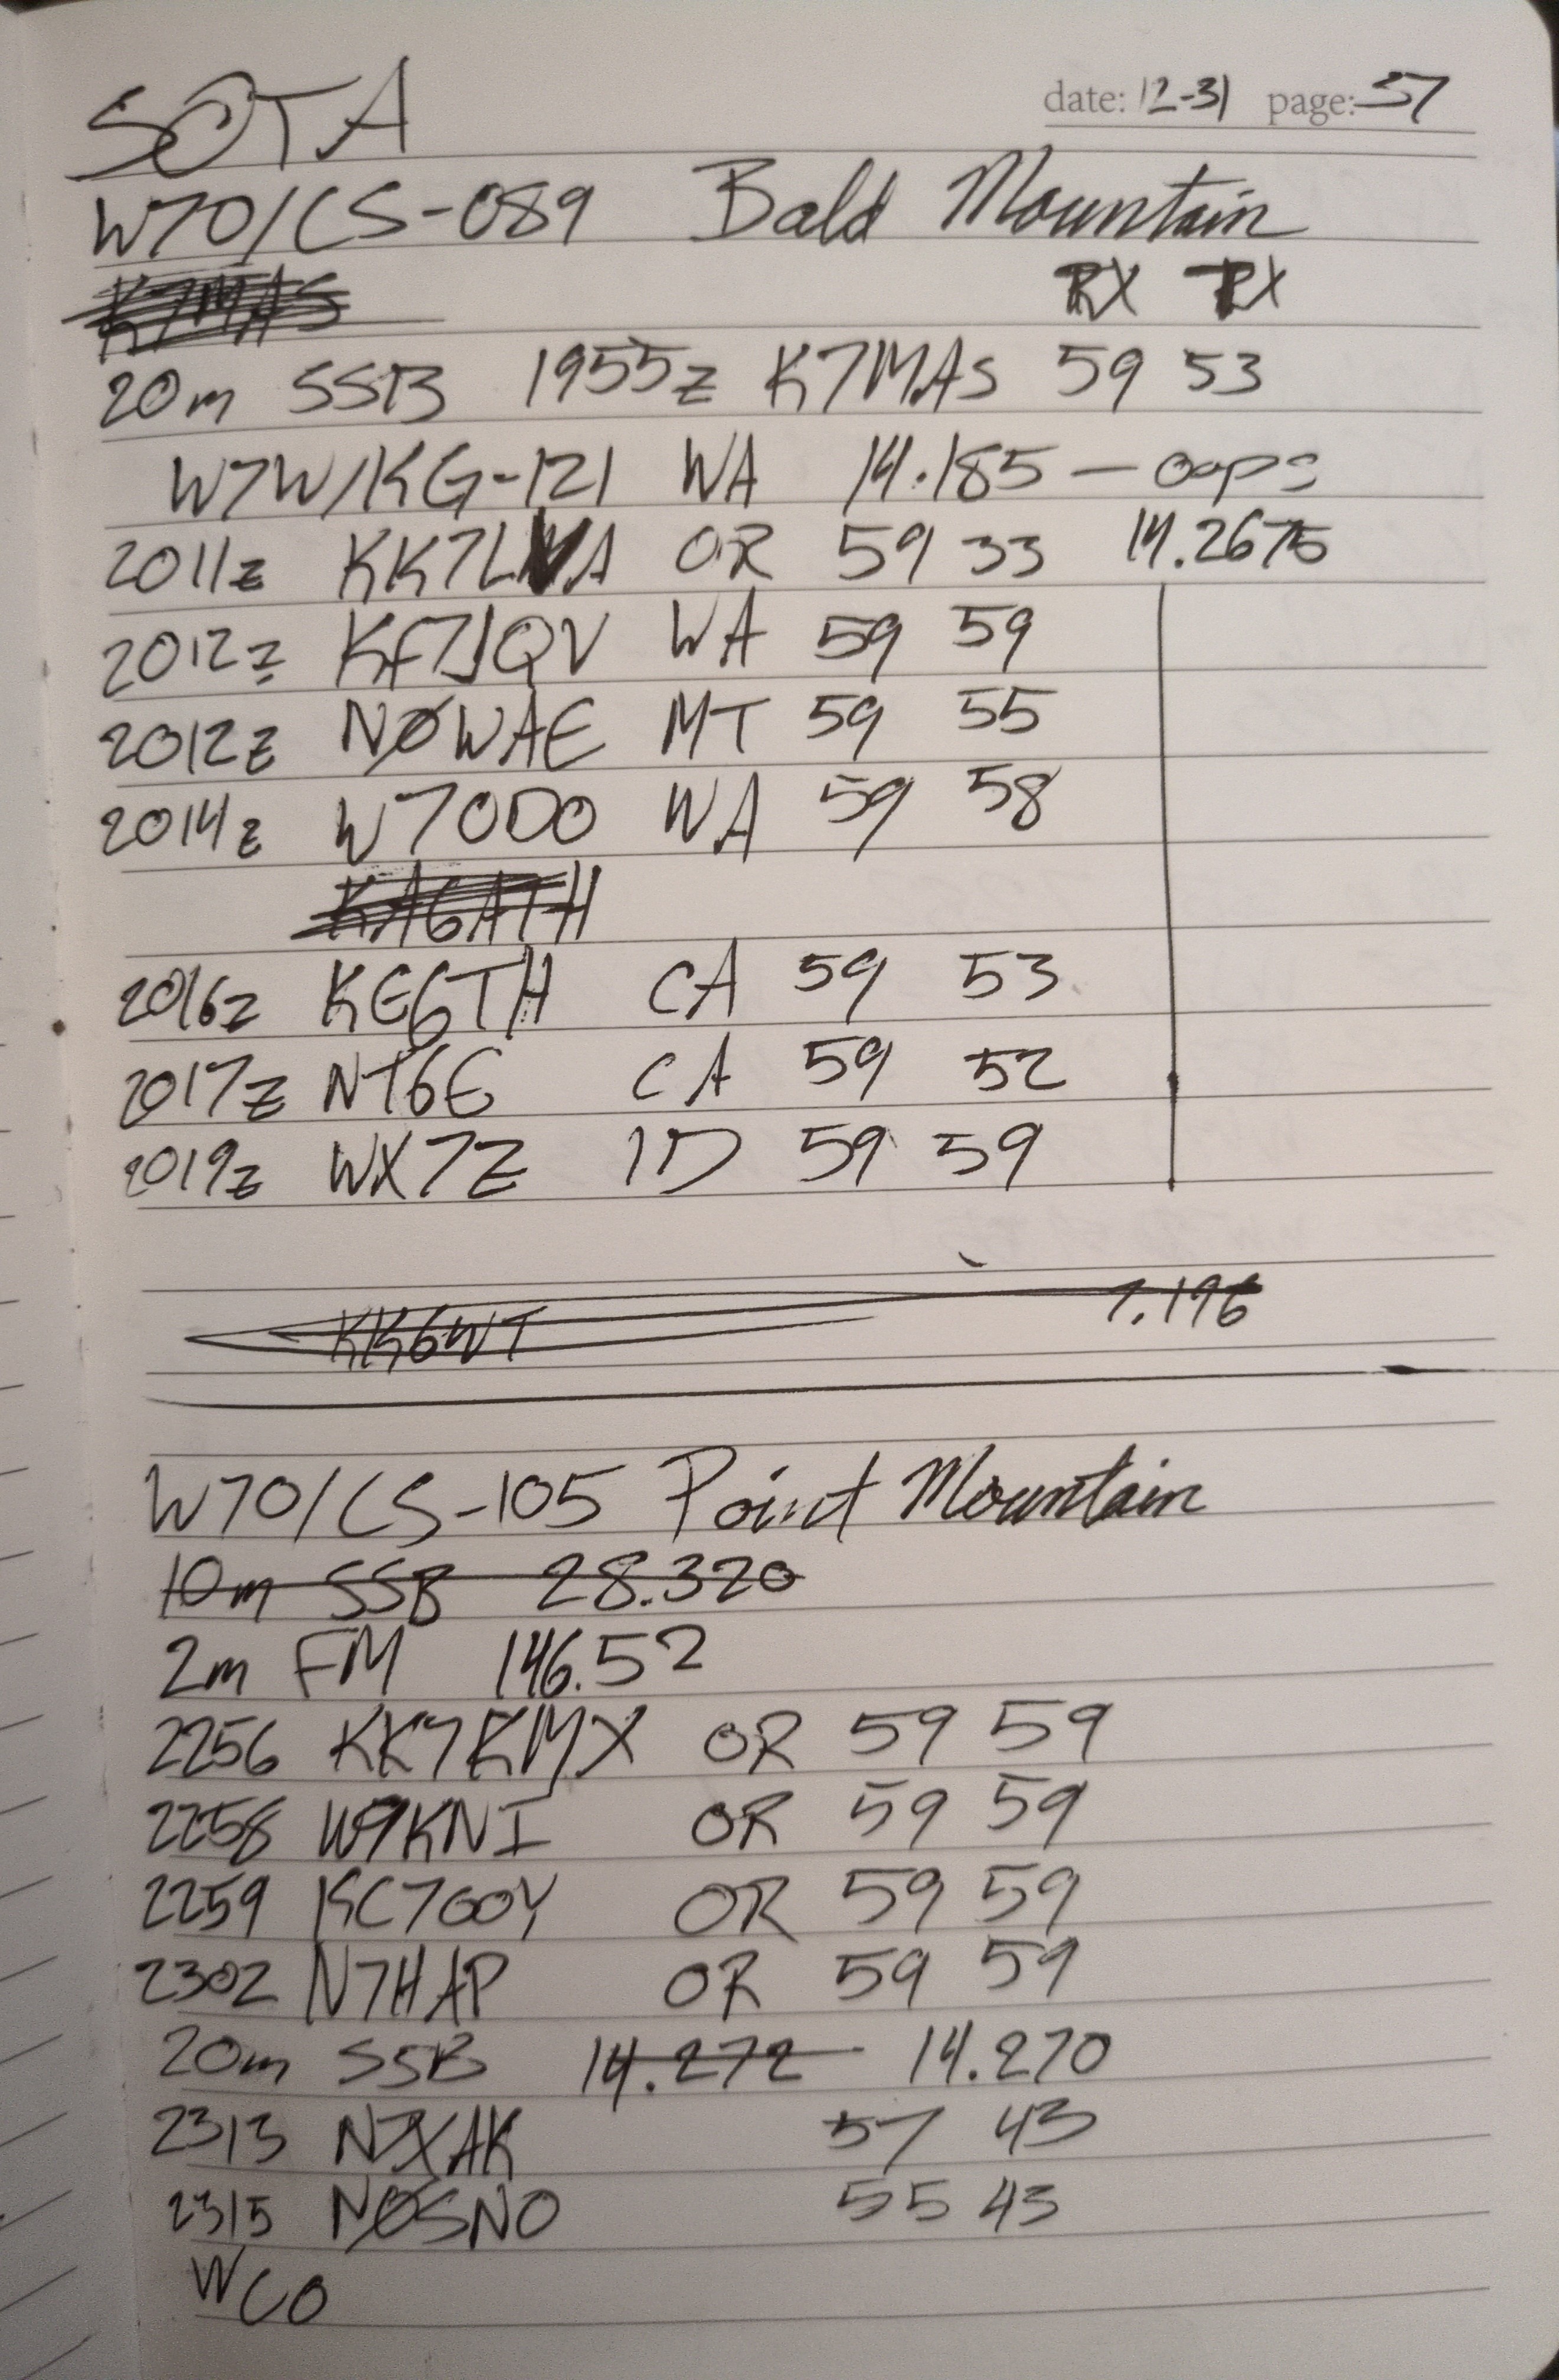 SOTA
date: 12-31 page: 37
W7O/CS-089 Bald Mountain
K7MAS
RX TX
20m SSB 1955z K7MAS 59 53
W7W/KG-121 WA 14.185 — oops
2011z KK7LVA OR 59 33 14.2675
2012z KF7JQV WA 59 59
2012z NØWAE MT 59 55
2014z W7ODO WA 59 58
KA6ATH
2016z KE6TH CA 59 53
2017z NT6E CA 59 52
2019z WX7Z ID 59 59
KK6WT 7.196
W7O/CS-105 Point Mountain
10m SSB 28.320
2m FM 146.52
2256 KK7RMX OR 59 59
2258 W9KNI OR 59 59
2259 KC7OOY OR 59 59
2302 N7HAP OR 59 59
20m SSB 14.272 14.270
2313 N7XAK 57 43
2315 NØSNO 55 43
WCO